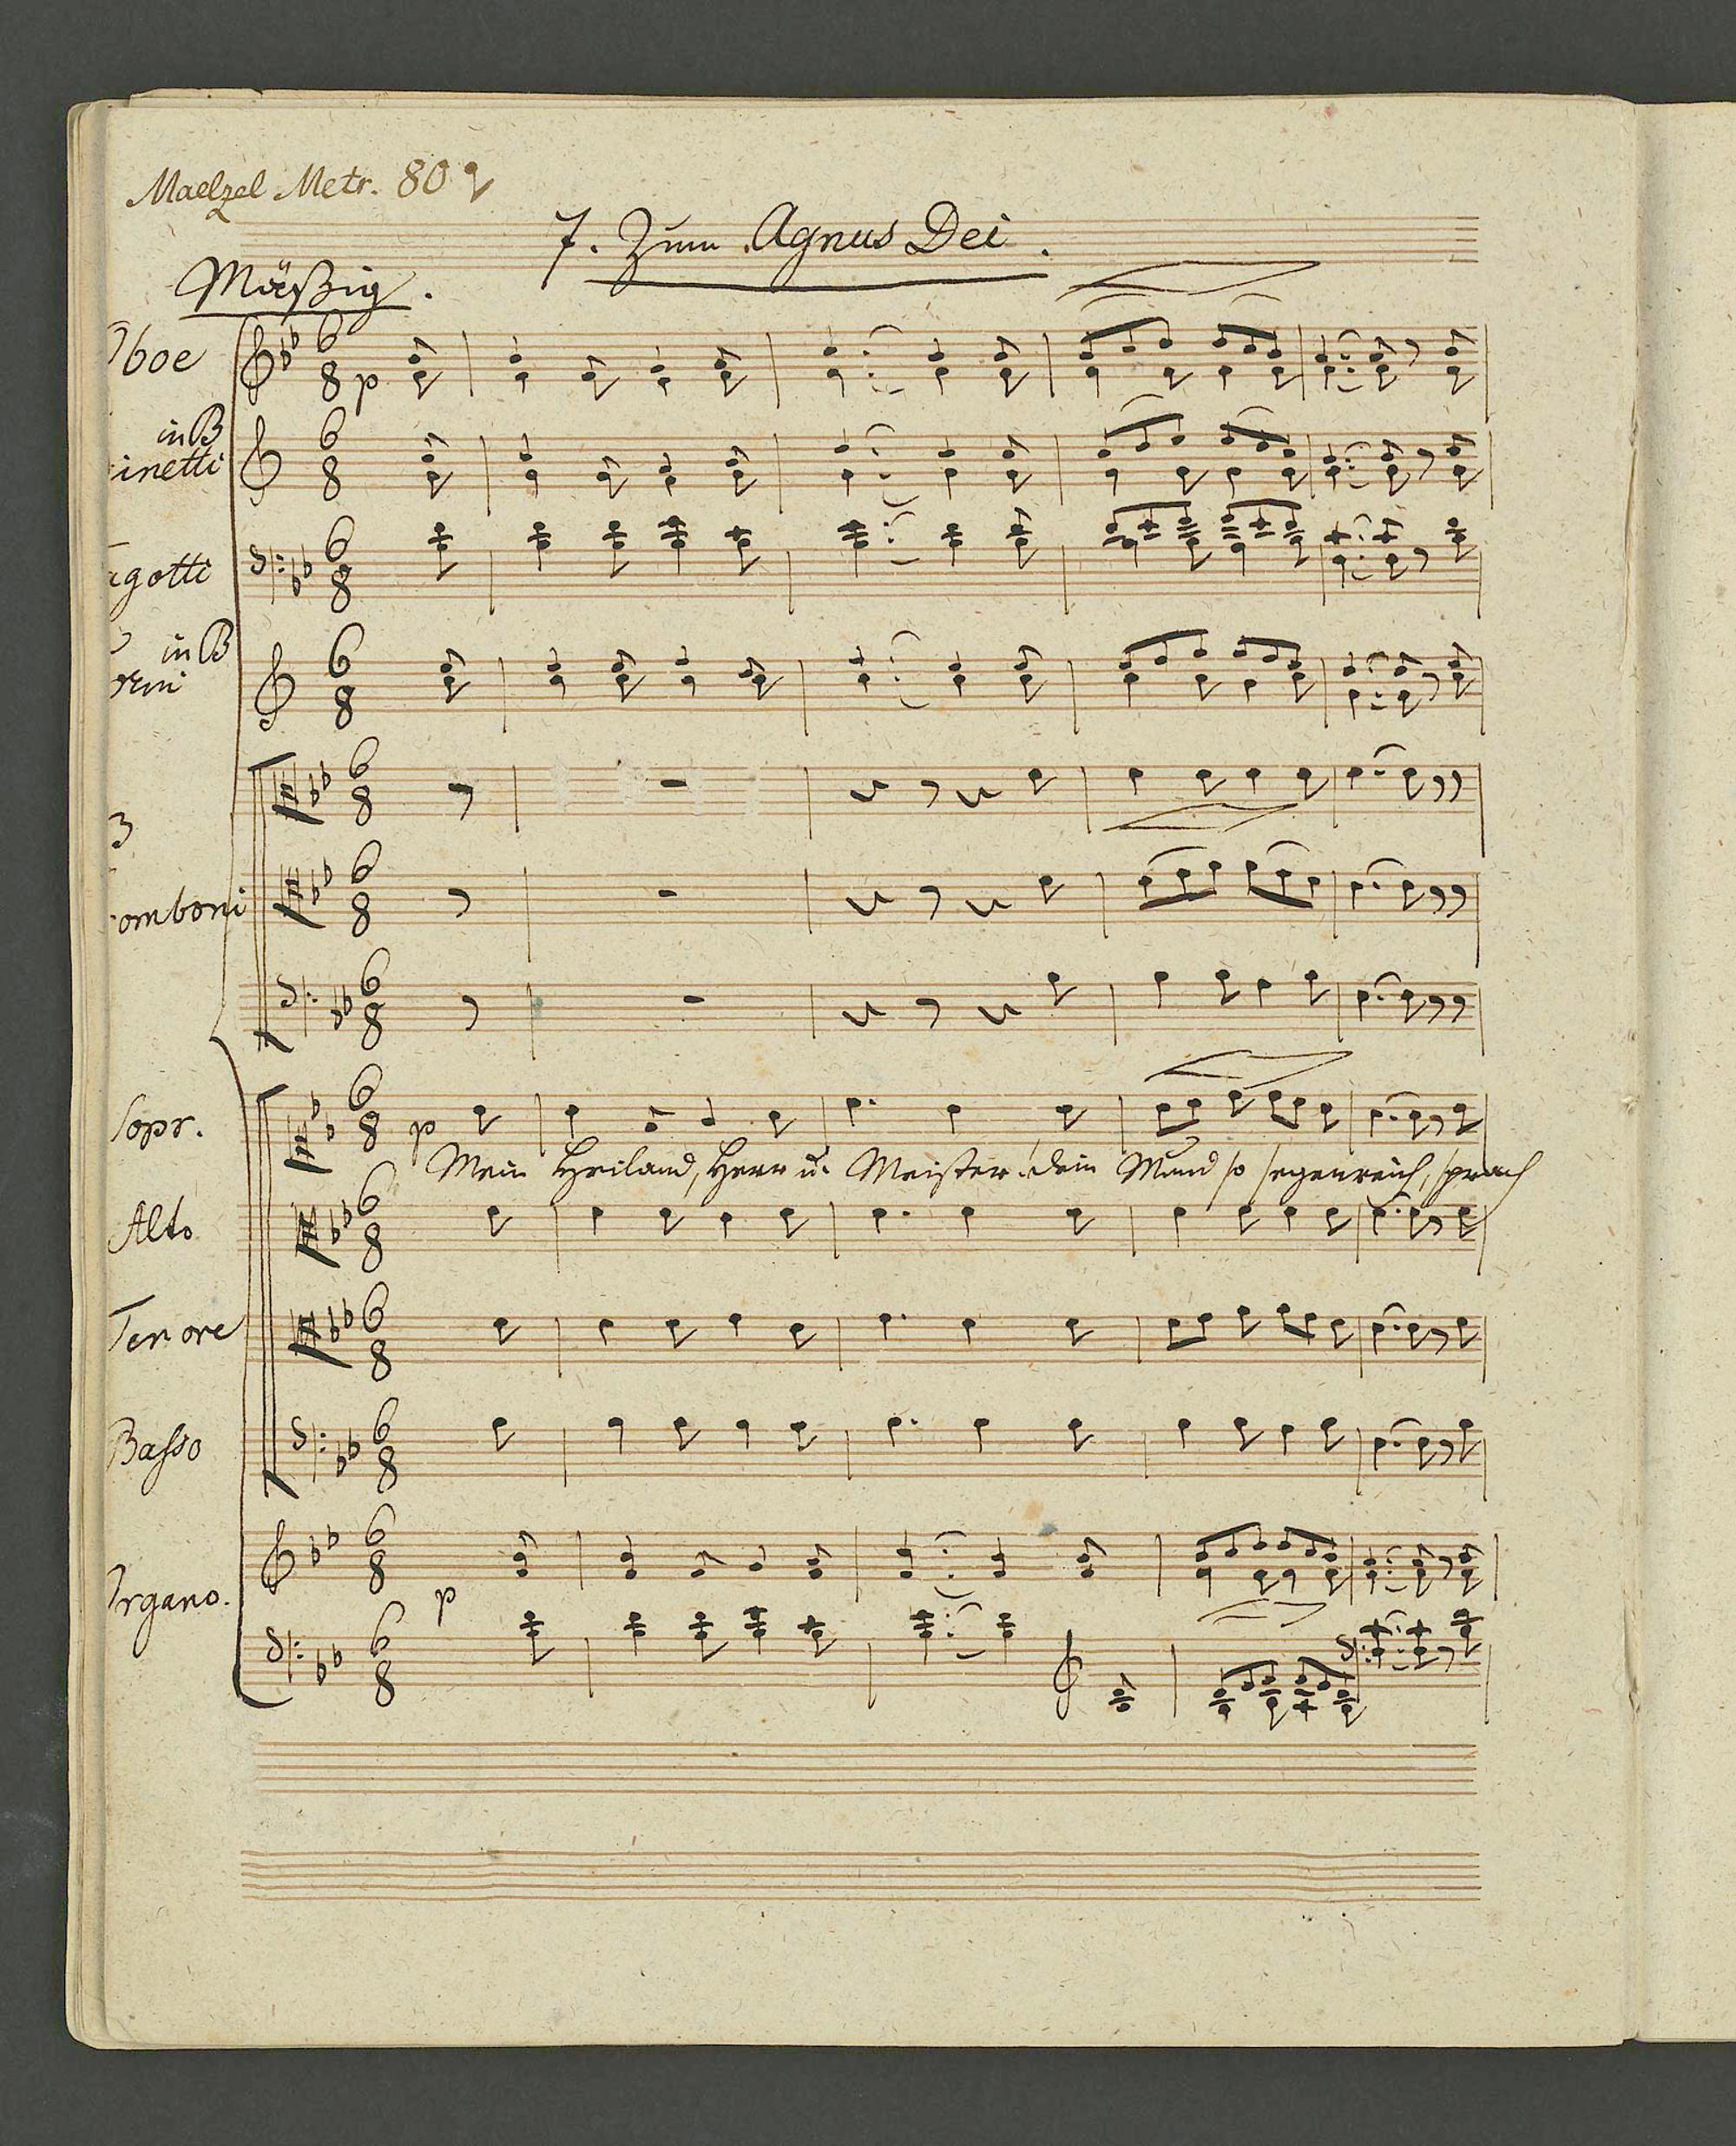 Maelzel Metr. 80
7. Zum Agnus Dei.
Mäßig.
Oboe
p
in B
inetti
agotti
in B
orni
3
omboni
Sopr.
p
Mein Heiland, Herr u. Meister! dein Mund so segenreich, sprach
Alto
Tenore
Basso
p
Organo.